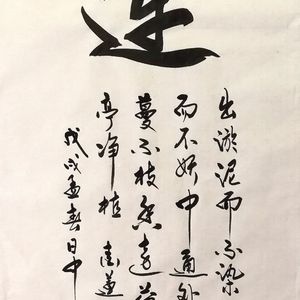 连
出淤泥而不染
而不妖中通外
蔓不枝香远益
亭净植 莲
戊戌孟春日中